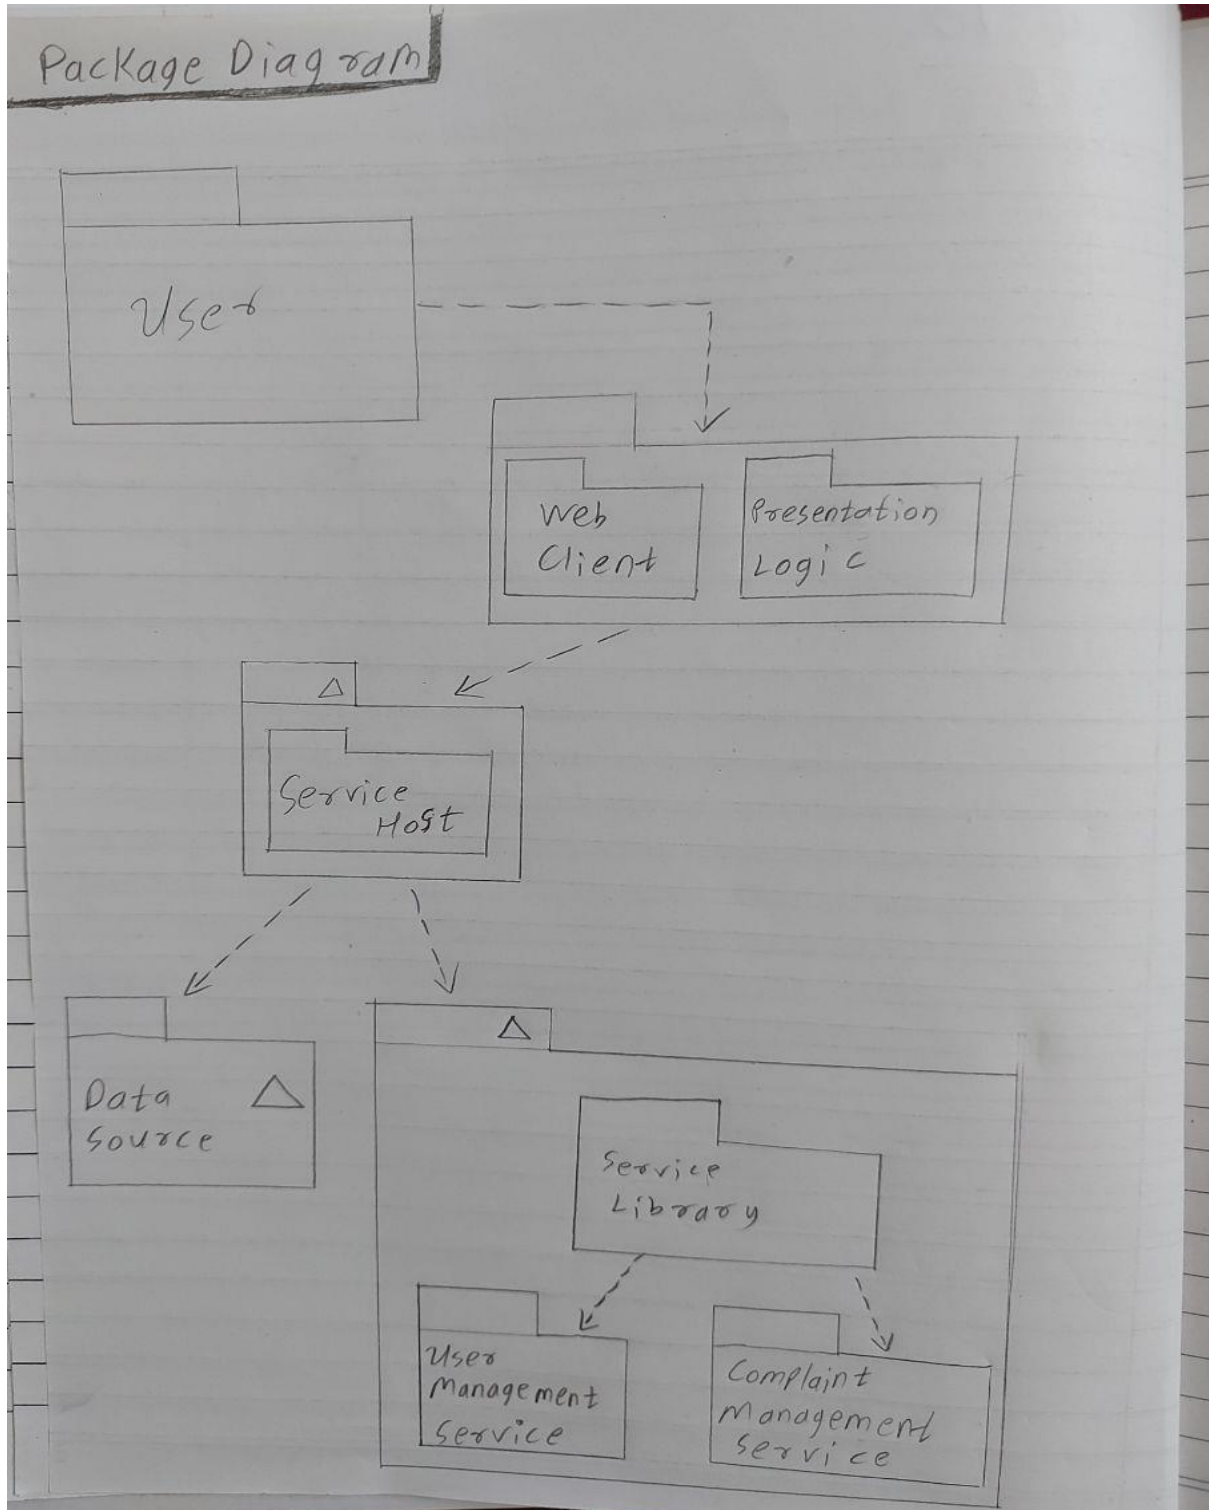 Package Diagram
User
Web
Client
Presentation
Logic
Service
Host
Data
Source
Service
Library
User
Management
Service
Complaint
Management
Service